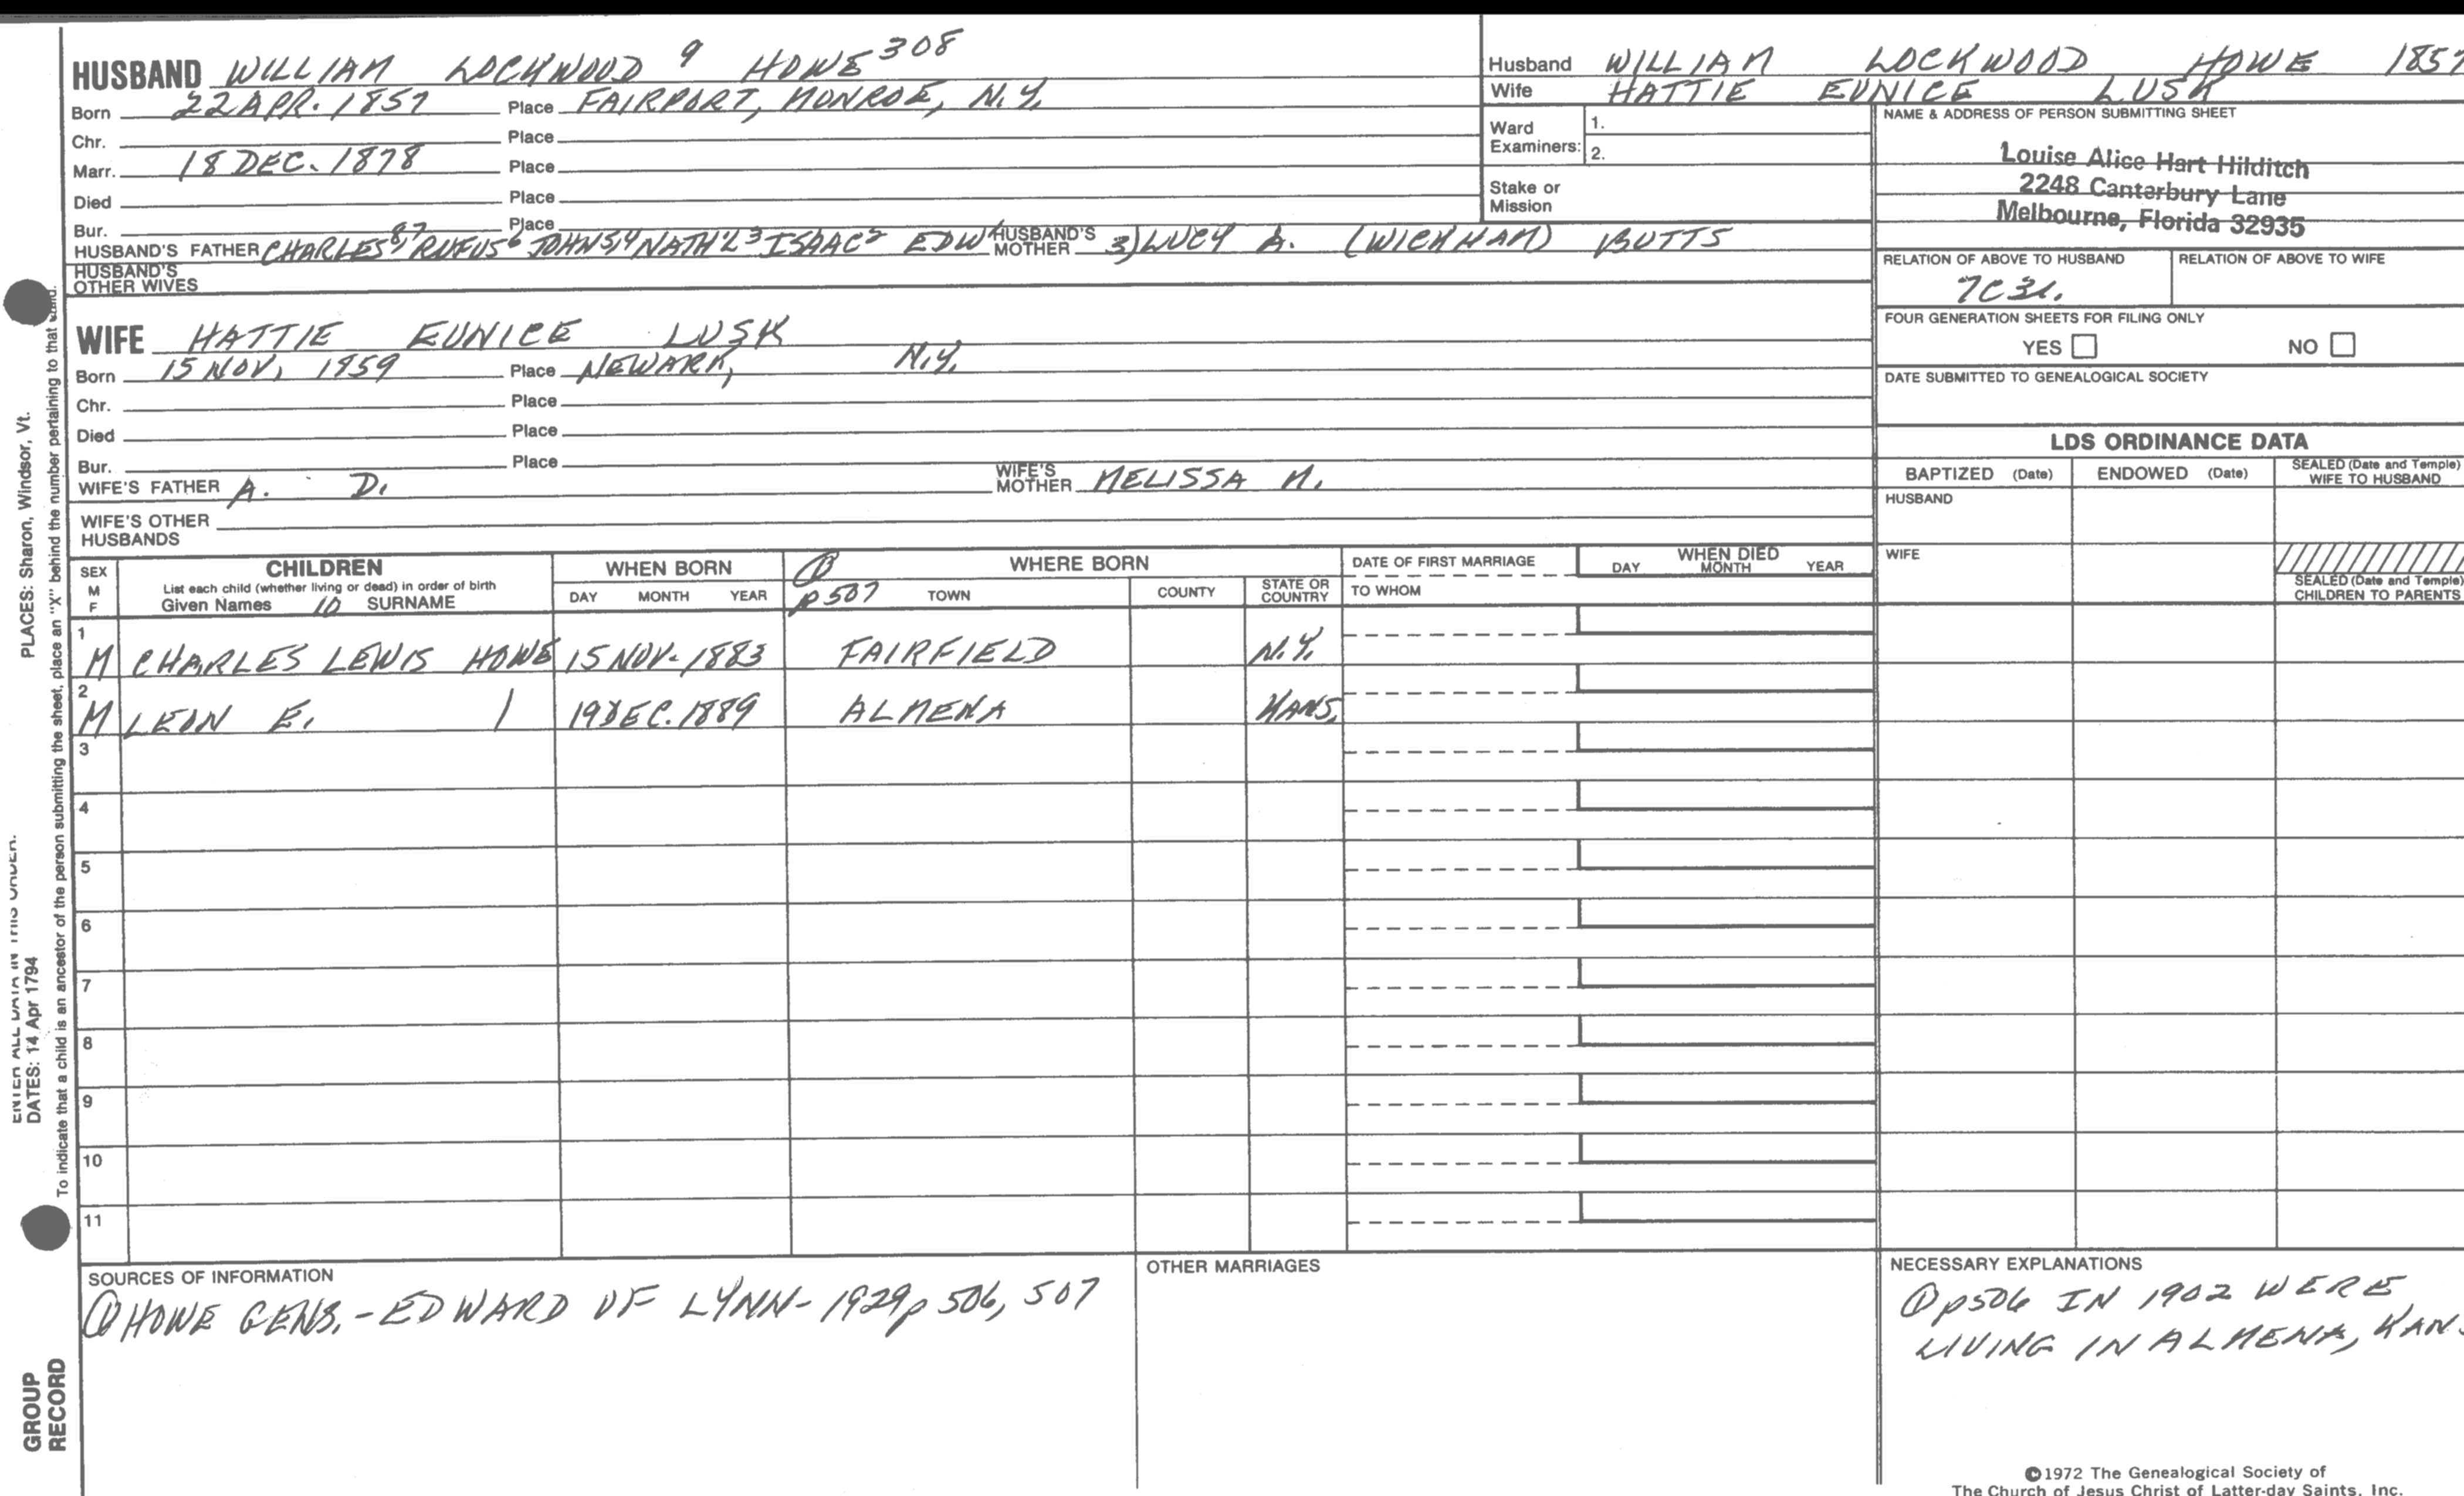 HUSBAND WILLIAM LOCKWOOD 9 HOWE 308
Born 22 APR. 1857 Place FAIRPORT, MONROE, N.Y.
Chr. Place
Marr. 18 DEC. 1878 Place
Died Place
Bur. Place
HUSBAND'S FATHER CHARLES 8 7 RUFUS 6 JOHN 5,4 NATH'L 3 ISAAC 2 EDW HUSBAND'S MOTHER 3) LUCY A. (WICKHAM) BUTTS
HUSBAND'S OTHER WIVES
WIFE HATTIE EUNICE LUSK
Born 15 NOV, 1859 Place NEWARK, N.Y.
Chr. Place
Died Place
Bur. Place
WIFE'S FATHER A. D. WIFE'S MOTHER MELISSA M.
WIFE'S OTHER HUSBANDS
Husband WILLIAM LOCKWOOD HOWE 1857
Wife HATTIE EUNICE LUSK
Ward Examiners: 1.
2.
Stake or Mission
NAME & ADDRESS OF PERSON SUBMITTING SHEET
Louise Alice Hart Hilditch
2248 Canterbury Lane
Melbourne, Florida 32935
RELATION OF ABOVE TO HUSBAND RELATION OF ABOVE TO WIFE
FOUR GENERATION SHEETS FOR FILING ONLY
YES NO
DATE SUBMITTED TO GENEALOGICAL SOCIETY
LDS ORDINANCE DATA
BAPTIZED (Date) ENDOWED (Date) SEALED (Date and Temple) WIFE TO HUSBAND
HUSBAND
WIFE
SEALED (Date and Temple) CHILDREN TO PARENTS
SEX M F
CHILDREN
List each child (whether living or dead) in order of birth
Given Names 10 SURNAME
WHEN BORN
DAY MONTH YEAR
① p 507
WHERE BORN
TOWN COUNTY STATE OR COUNTRY
DATE OF FIRST MARRIAGE
TO WHOM
WHEN DIED
DAY MONTH YEAR
1 M CHARLES LEWIS HOWE 15 NOV. 1883 FAIRFIELD N.Y.
2 M LEON E. 19 DEC. 1889 ALMENA KANS.
3
4
5
6
7
8
9
10
11
SOURCES OF INFORMATION
① HOWE GENS. - EDWARD OF LYNN - 1929 p 506, 507
OTHER MARRIAGES
NECESSARY EXPLANATIONS
① p506 IN 1902 WERE
LIVING IN ALMENA, KANS
©1972 The Genealogical Society of
The Church of Jesus Christ of Latter-day Saints, Inc.
PLACES: Sharon, Windsor, Vt.
ENTER ALL DATA IN THIS ORDER:
DATES: 14 Apr 1794
To indicate that a child is an ancestor of the person submitting the sheet, place an "X" behind the number pertaining to that
GROUP
RECORD